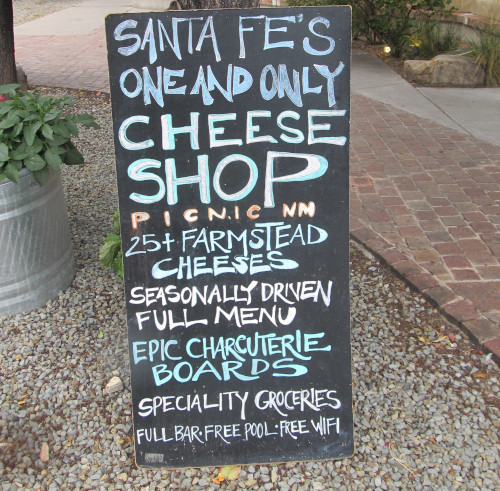 SANTA FE'S
ONE AND ONLY
CHEESE
SHOP
PICNIC NM
25+ FARMSTEAD
CHEESES
SEASONALLY DRIVEN
FULL MENU
EPIC CHARCUTERIE
BOARDS
SPECIALITY GROCERIES
FULL BAR · FREE POOL · FREE WIFI